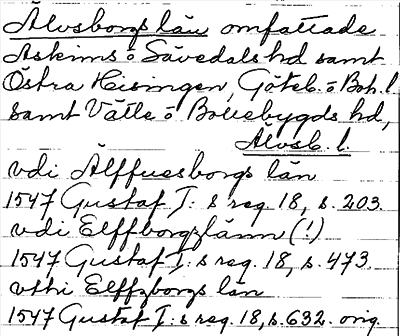 Älvsborgs län omfattade
Askims o Sävedals hd samt
Östra Hisingen, Göteb. o Boh. l.
samt Vätle o Bollebygds hd,
Älvsb. l.
vdi Älffuesborgs län
1547 Gustaf I:s reg. 18, s. 203.
vdi Elffborgzlänn (!)
1547 Gustaf I:s reg. 18, s. 473.
vthi Elffzborgs län
1547 Gustaf I:s reg. 18, s. 632. orig.